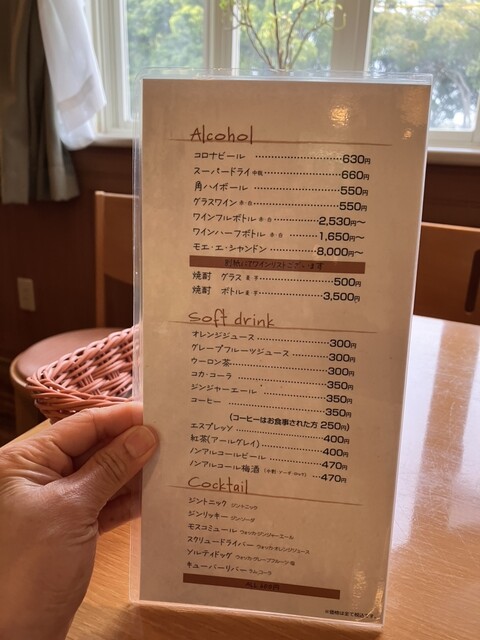 Alcohol
コロナビール ……………630円
スーパードライ 中瓶……………660円
角ハイボール ……………550円
グラスワイン 赤・白……………550円
ワインフルボトル 赤・白……………2,530円〜
ワインハーフボトル 赤・白……………1,650円〜
モエ・エ・シャンドン……………8,000円〜
別紙にてワインリストございます
焼酎 グラス 麦・芋……………500円
焼酎 ボトル 麦・芋……………3,500円
Soft drink
オレンジジュース……………300円
グレープフルーツジュース……………300円
ウーロン茶……………300円
コカ・コーラ……………350円
ジンジャーエール……………350円
コーヒー ……………350円
(コーヒーはお食事された方 250円)
エスプレッソ……………400円
紅茶(アールグレイ)……………400円
ノンアルコールビール……………470円
ノンアルコール梅酒 ……470円
Cocktail
ジントニック ジン・トニック
ジンリッキー ジン・ソーダ
モスコミュール ウォッカ・ジンジャーエール
スクリュードライバー ウォッカ・オレンジジュース
ソルティドッグ ウォッカ・グレープフルーツ・塩
キューバーリバー ラム・コーラ
※価格は全て税込です。